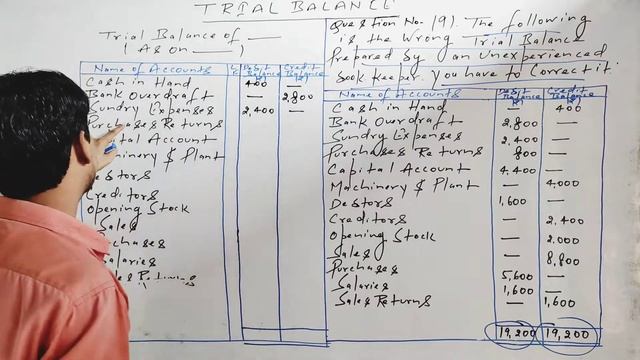 TRIAL BALANCE
Trial Balance of —
(As on —)
Name of Accounts Debit Balance Credit Balance
Cash in Hand 400 —
Bank Overdraft — 2,800
Sundry Expenses 2,400 —
Purchases Returns
Account
& Plant
Creditors
Opening Stock
Sales
Salaries
Question No. 19). The following
is the Wrong Trial Balance
Prepared by an Unexperienced
book keeper you have to correct it.
Name of Accounts Debit Balance Credit Balance
Cash in Hand — 400
Bank Overdraft 2,800 —
Sundry Expenses 2,400 —
Purchases Returns 800 —
Capital Account 4,400 —
Machinery & Plant — 4,000
Debtors 1,600 —
Creditors — 2,400
Opening Stock — 2,000
Sales — 8,800
Purchases 5,600 —
Salaries 1,600 —
Sales Returns — 1,600
19,200 19,200